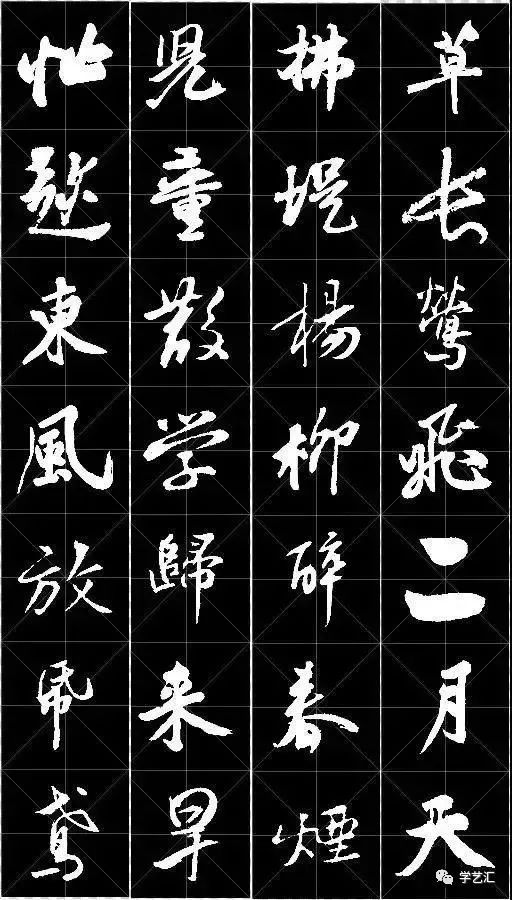 草长鶯飛二月天
拂堤楊柳醉春煙
兒童散学歸来早
忙趁東風放帋鳶
学艺汇